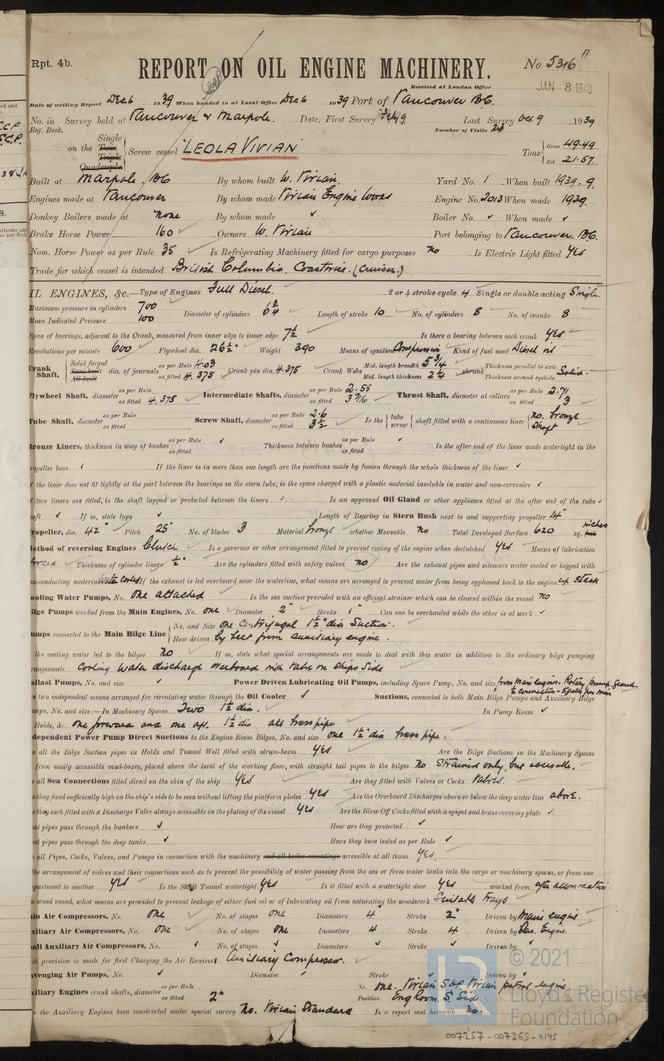 Rpt. 4b.
REPORT ON OIL ENGINE MACHINERY.
No. 5316
Received at London Office
JAN 8 1940
Date of writing Report Dec 6 1939 When handed in at Local Office Dec 6 1939 Port of Vancouver B.C.
No. in Survey held at Vancouver & Marpole. Date, First Survey Last Survey Oct 9 1939
Reg. Book. Number of Visits
on the Single Twin Triple Quadruple Screw vessel LEOLA VIVIAN Tons Gross 49.49 Net 21.57
Built at Marpole, BC By whom built W. Vivian. Yard No. 1 When built 1939. 9.
Engines made at Vancouver By whom made Vivian Engine Works Engine No. 2013 When made 1939.
Donkey Boilers made at none By whom made ✓ Boiler No. ✓ When made ✓
Brake Horse Power 160 Owners W. Vivian Port belonging to Vancouver, B.C.
Nom. Horse Power as per Rule 35 Is Refrigerating Machinery fitted for cargo purposes no Is Electric Light fitted Yes
Trade for which vessel is intended British Columbia. Coastwise. (Cruiser.)
IL ENGINES, &c.—Type of Engines Full Diesel. 2 or 4 stroke cycle 4 Single or double acting Single
Maximum pressure in cylinders 700 Diameter of cylinders Length of stroke 10 No. of cylinders 8 No. of cranks 8
Mean Indicated Pressure 100
Span of bearings, adjacent to the Crank, measured from inner edge to inner edge 7½ Is there a bearing between each crank yes
Revolutions per minute 600 Flywheel dia. 26½" Weight 390 Means of ignition Compression Kind of fuel used Diesel oil
Crank Shaft, Solid forged Semi built All built dia. of journals as per Rule 4.03 as fitted 4.375 Crank pin dia. 4.375 Crank Webs Mid. length breadth 5¾ Mid. length thickness 2¼ shrunk Thickness parallel to axis Solid. Thickness around eyehole
Flywheel Shaft, diameter as per Rule as fitted 4.375 Intermediate Shafts, diameter as per Rule 2.58 as fitted 3 7/16 Thrust Shaft, diameter at collars as per Rule 2.71 as fitted 3
Tube Shaft, diameter as per Rule as fitted Screw Shaft, diameter as per Rule 2.6 as fitted 3½ Is the tube screw shaft fitted with a continuous liner no. bronze shaft
Bronze Liners, thickness in way of bushes as per Rule as fitted Thickness between bushes as per Rule as fitted Is the after end of the liner made watertight in the
propeller boss ✓ If the liner is in more than one length are the junctions made by fusion through the whole thickness of the liner ✓
f the liner does not fit tightly at the part between the bearings in the stern tube, is the space charged with a plastic material insoluble in water and non-corrosive ✓
f two liners are fitted, is the shaft lapped or protected between the liners ✓ Is an approved Oil Gland or other appliance fitted at the after end of the tube ✓
aft ✓ If so, state type ✓ Length of Bearing in Stern Bush next to and supporting propeller 14"
Propeller, dia. 42" Pitch 25" No. of blades 3 Material bronze whether Moveable no Total Developed Surface 620 sq. inches
Method of reversing Engines Clutch Is a governor or other arrangement fitted to prevent racing of the engine when declutched yes Means of lubrication
forced Thickness of cylinder liners ½" Are the cylinders fitted with safety valves no Are the exhaust pipes and silencers water cooled or lagged with
non-conducting material Water cooled If the exhaust is led overboard near the waterline, what means are arranged to prevent water from being syphoned back to the engine up stack
Cooling Water Pumps, No. one attached Is the sea suction provided with an efficient strainer which can be cleared within the vessel no
Bilge Pumps worked from the Main Engines, No. one Diameter 2" Stroke 1" Can one be overhauled while the other is at work ✓
umps connected to the Main Bilge Line No. and Size one Centrifugal 1½" dia Suction.
How driven by belt from auxiliary engine.
the cooling water led to the bilges no If so, state what special arrangements are made to deal with this water in addition to the ordinary bilge pumping
rangements Cooling water discharged overboard via tube on Ships Side
Ballast Pumps, No. and size ✓ Power Driven Lubricating Oil Pumps, including Spare Pump, No. and size from main engine. Rotary pump, Geared
re two independent means arranged for circulating water through the Oil Cooler ✓ Suctions, connected to both Main Bilge Pumps and Auxiliary Bilge
umps, No. and size:—In Machinery Spaces Two 1½ dia. In Pump Room ✓
Holds, &c. one forward and one aft. 1½ dia all brass pipe
dependent Power Pump Direct Suctions to the Engine Room Bilges, No. and size one 1½" dia brass pipe.
re all the Bilge Suction pipes in Holds and Tunnel Well fitted with strum-boxes yes Are the Bilge Suctions in the Machinery Spaces
from easily accessible mud-boxes, placed above the level of the working floor, with straight tail pipes to the bilges no Strained only, but accessible.
re all Sea Connections fitted direct on the skin of the ship yes Are they fitted with Valves or Cocks Valves.
re they fixed sufficiently high on the ship's side to be seen without lifting the platform plates yes Are the Overboard Discharges above or below the deep water line above.
re they each fitted with a Discharge Valve always accessible on the plating of the vessel yes Are the Blow Off Cocks fitted with a spigot and brass covering plate ✓
at pipes pass through the bunkers ✓ How are they protected ✓
at pipes pass through the deep tanks ✓ Have they been tested as per Rule ✓
re all Pipes, Cocks, Valves, and Pumps in connection with the machinery and all boiler mountings accessible at all times yes.
the arrangement of valves and their connections such as to prevent the possibility of water passing from the sea or from water tanks into the cargo or machinery spaces, or from one
partment to another yes Is the Shaft Tunnel watertight yes Is it fitted with a watertight door yes worked from
a wood vessel, what means are provided to prevent leakage of either fuel oil or of lubricating oil from saturating the woodwork Suitable trays
ain Air Compressors, No. one No. of stages one Diameters 4 Stroke 2" Driven by Main engine
uxiliary Air Compressors, No. one No. of stages one Diameters 4 Stroke 4 Driven by Aux. Engine
all Auxiliary Air Compressors, No. ✓ No. of stages ✓ Diameters ✓ Stroke ✓ Driven by ✓
at provision is made for first Charging the Air Receivers Auxiliary Compressor.
avenging Air Pumps, No. ✓ Diameter ✓ Stroke ✓ Driven by ✓
uxiliary Engines crank shafts, diameter as per Rule as fitted 2" No. one. Vivian 5hp Vivian petrol engine
Position Eng Room. S. Side
ve the Auxiliary Engines been constructed under special survey no. Vivian Standard Is a report sent herewith no.
© 2021
Lloyd's Register
Foundation
007257-007265-0195